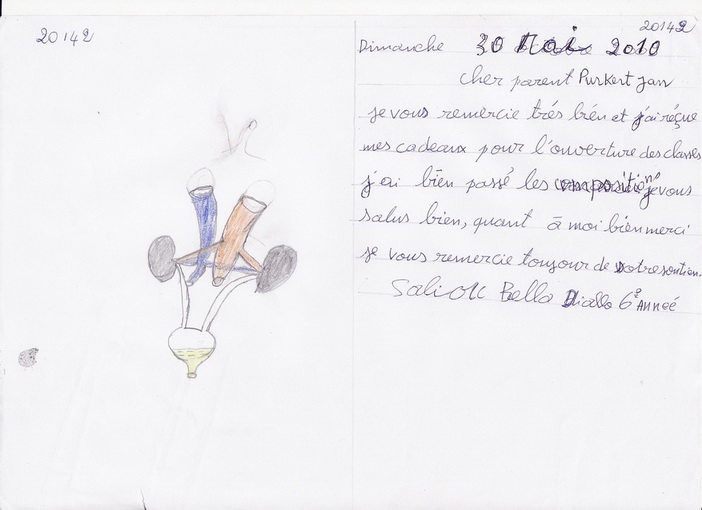 20142
20142
Dimanche 30 Mai 2010
Cher parent Purkert Jan
je vous remercie trés bien et j'ai réçue
mes cadeaux pour l'ouverture des classes
j'ai bien passé les compositions je vous
salus bien, quant à moi bien merci
je vous remercie toujour de votre soutien.
Saliou Bella Diallo 6e Anneé